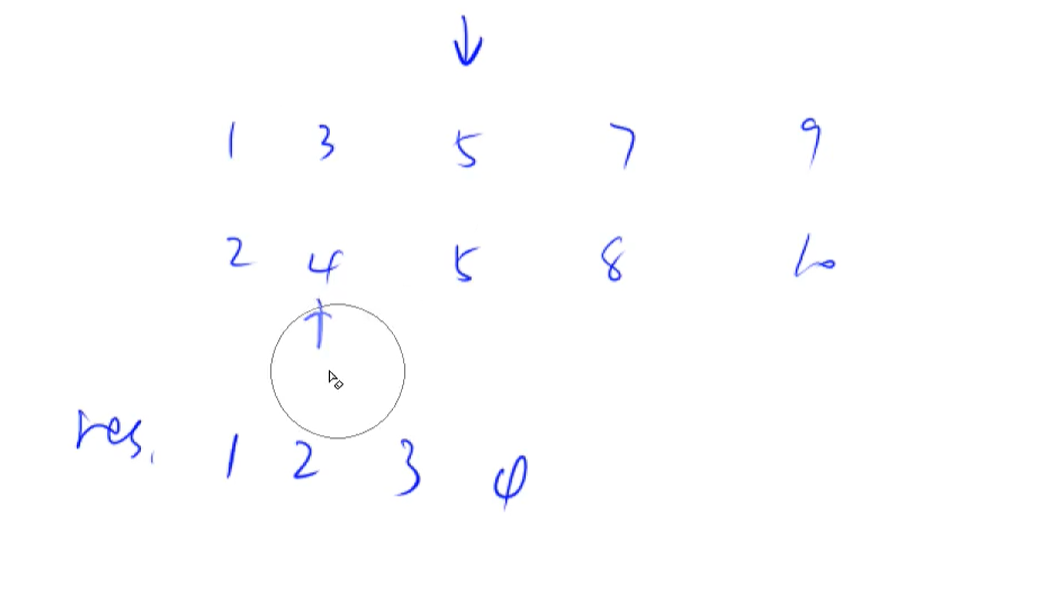 1 3 5 7 9
2 4 5 8 10
res. 1 2 3 4